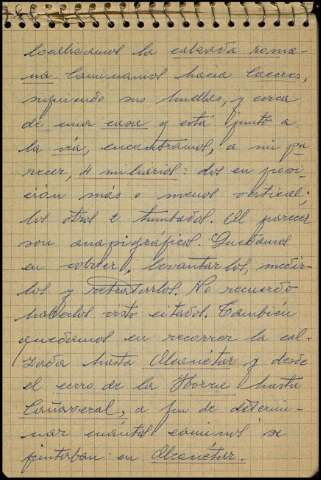 localizamos la calzada roma-
na. Caminamos hacia Cáceres,
siguiendo sus huellas, y cerca
de una casa y está junto a
la vía, encontramos, a mi pa-
recer, 4 miliarios: dos en posi-
ción más o menos vertical;
los otros 2 tumbados. Al parecer
son anapigráficos. Quedamos
en volver, levantarlos, medir-
los y retratarlos. No recuerdo
haberlos visto citados. También
quedamos en recorrer la cal-
zada hasta Alconétar y desde
el cerro de la Horca hasta
Cañaveral, a fin de determi-
nar cuántos caminos se
juntaban en Alconétar.